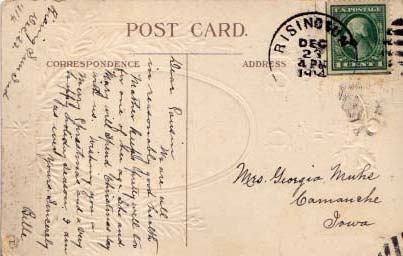 POST CARD.
CORRESPONDENCE
ADDRESS
RISING SUN
DEC
23
4 PM
1914
U.S. POSTAGE
1 CENT 1
Rising Sun Ind
Dec. 22,
1914
Dear Cousin
We are all
in reasonably good health
Mother keeps pretty well to
for one of her age. She and
Mary will spend Christmas day
with us. Wishing you a
Merry Christmas and a very
happy holiday season I am
as ever Yours Sincerely
Belle
Mrs. Georgia Muhs
Camanche
Iowa